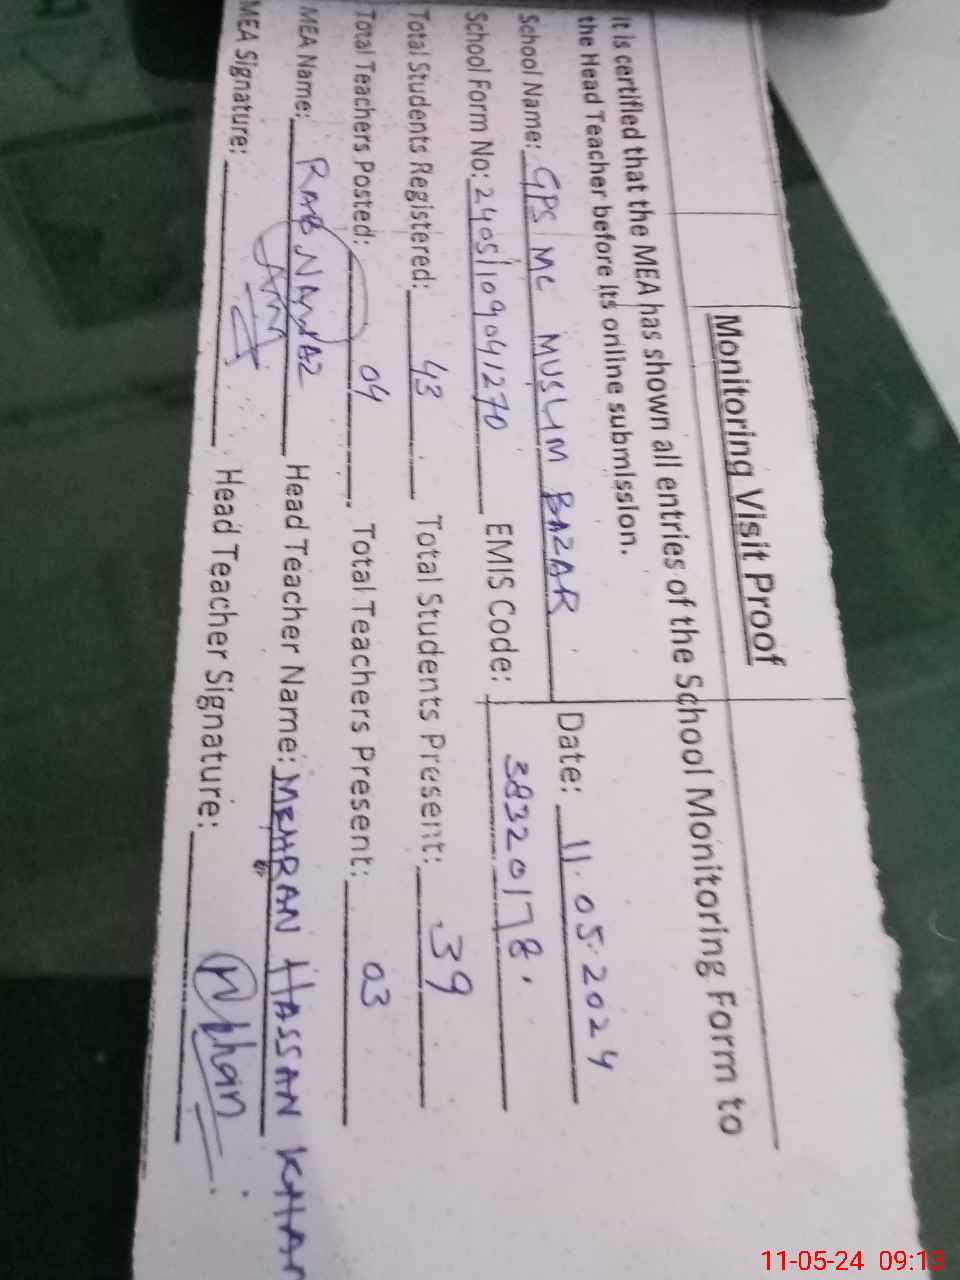 Monitoring Visit Proof
It is certified that the MEA has shown all entries of the School Monitoring Form to
the Head Teacher before its online submission.
Date: 11.05.2024
School Name: GPS MC MUSLIM BAZAR
School Form No: 24051109041270 EMIS Code: 38320178.
Total Students Registered: 43 Total Students Present: 39
Total Teachers Posted: 04 Total Teachers Present: 03
MEA Name: RAB NAWAZ Head Teacher Name: MEHRAN HASSAN KHAN
MEA Signature: Head Teacher Signature:
11-05-24 09:13